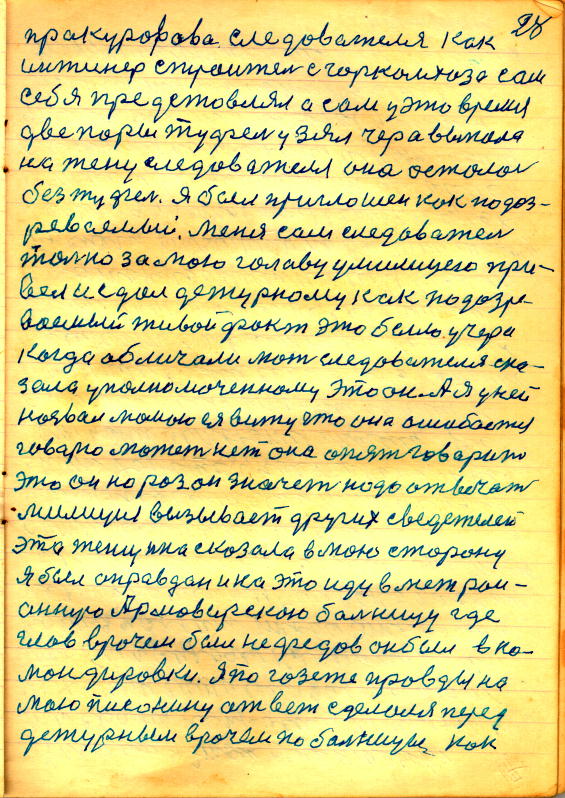 28
пракуророва следователя как
интинер строител с горкомхоза сам
себя предстовлял а сам у это время
две пары туфтел узял чера вымола
на жену следователя она осталас
без туфел. я был приглошен как подоз-
реваемый. меня сам следовател
толко за мою голаву у милицию при-
вел и сдал детурному как подозре-
ваемый живой факт это было учера
когда обличали мот следователя ска-
зала уполномоченному это он. А я у ней
назвал мамою я вижу что она ошибается
говарю может нет она опят говарит
это он но роз он значет надо отвечат
милиция вызывает других сведетелей
эта женщина сказала в мою сторону
я был оправдан и на это иду в межраи-
онную Армавирскою балницу где
глов врочем был нефедов он был в ко-
мондировки. я по газете правды на
мою писонину ответ сделоля перед
детурным врочем по балницы, как